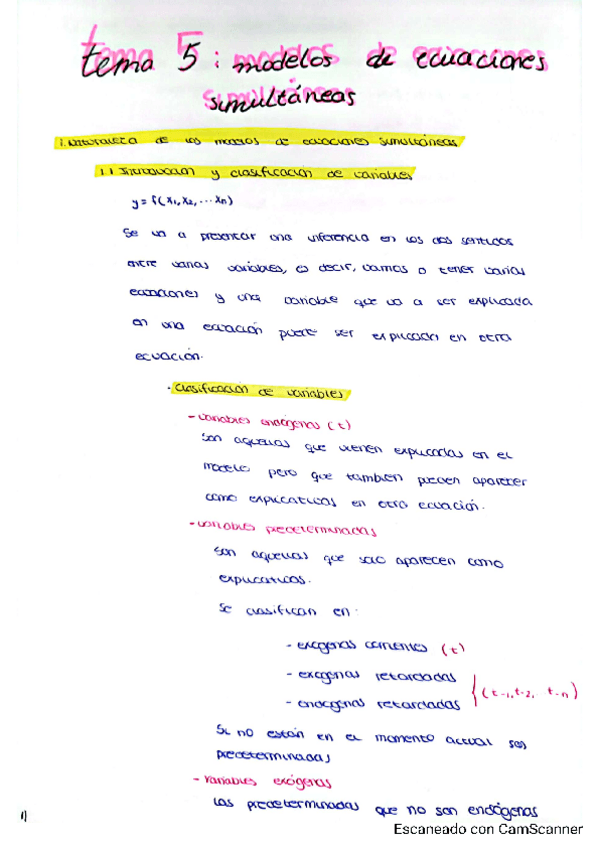 tema 5: modelos de ecuaciones
simultáneas
1. Naturaleza de los modelos de ecuaciones simultáneas
1.1 Introducción y clasificación de variables
y = f(x1, x2, ... xn)
Se va a presentar una inferencia en los dos sentidos
entre varias variables, es decir, vamos a tener varias
ecuaciones y una variable que va a ser explicada
en una ecuación puede ser explicada en otra
ecuación.
· Clasificación de variables
- variables endógenas (t)
Son aquellas que vienen explicadas en el
modelo pero que también pueden aparecer
como explicativas en otra ecuación.
- variables predeterminadas
Son aquellas que solo aparecen como
explicativas.
Se clasifican en:
- exógenas corrientes (t)
- exógenas retardadas
- endógenas retardadas } (t-1, t-2, t-n)
Si no están en el momento actual son
predeterminadas
- Variables exógenas
Las predeterminadas que no son endógenas
1
Escaneado con CamScanner